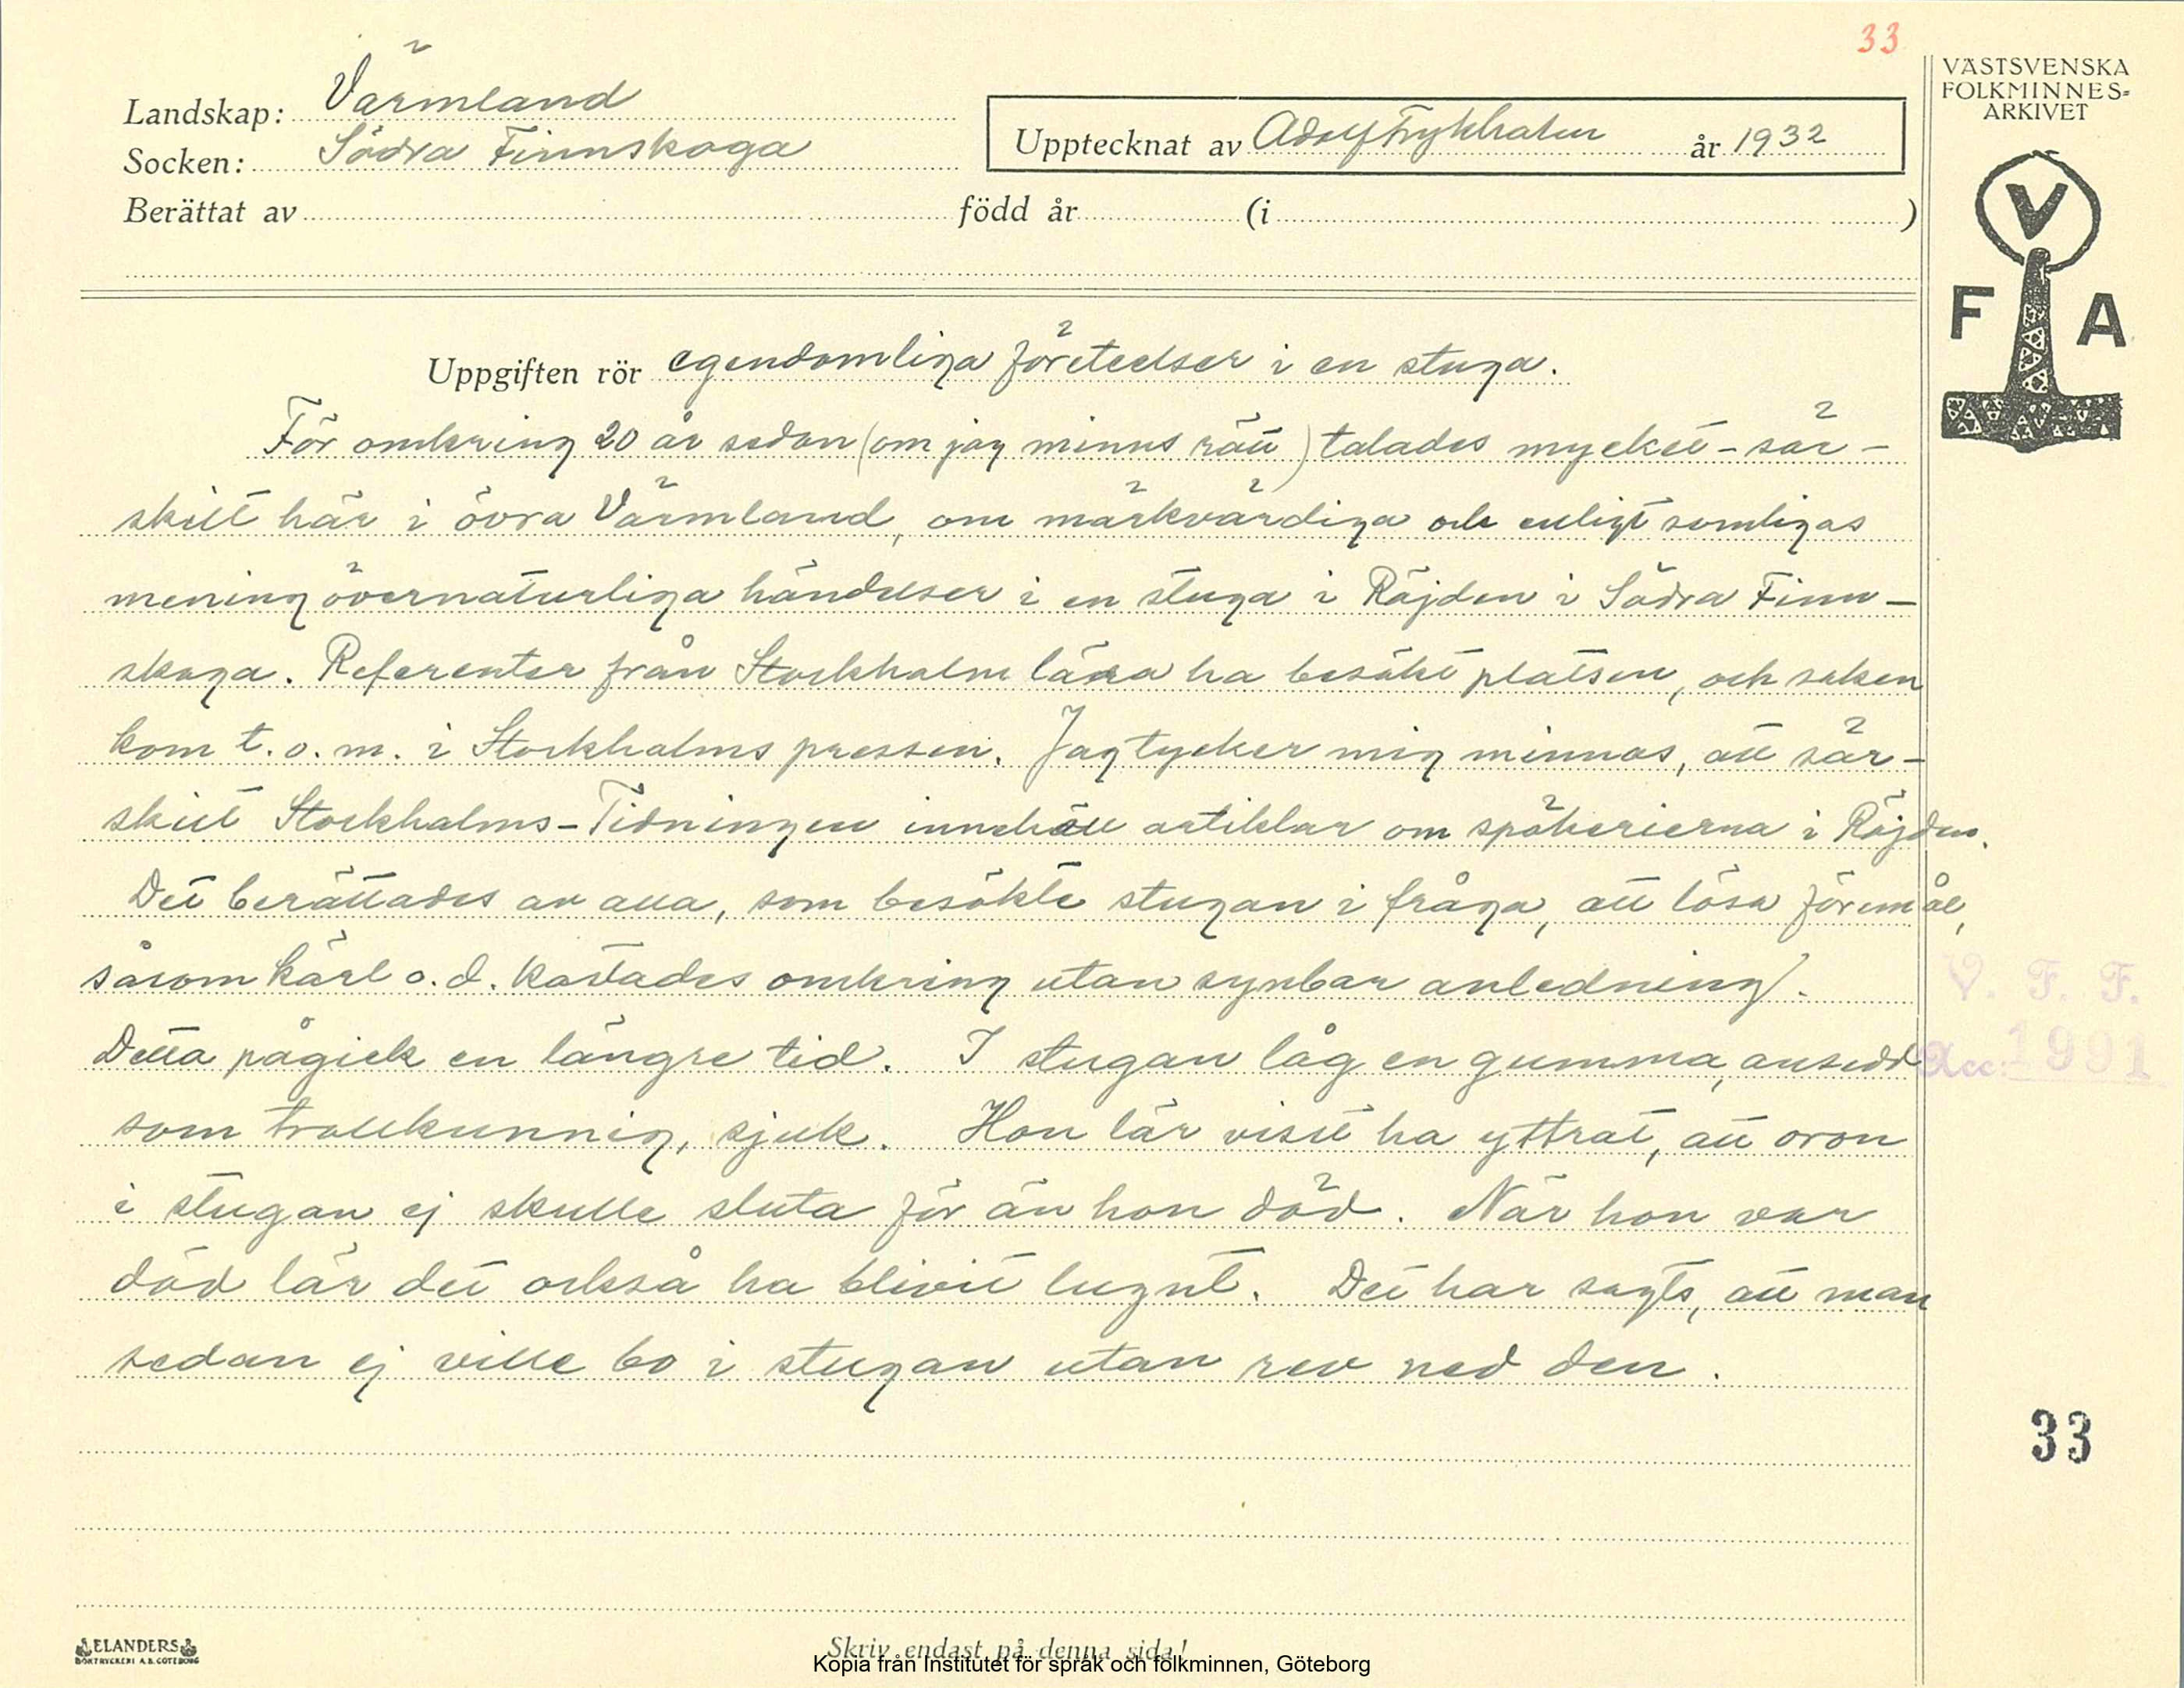 33
VÄSTSVENSKA
FOLKMINNES=
ARKIVET
Landskap: Värmland
Socken: Södra Finnskoga
Upptecknat av Adolf Frykholm år 1932
Berättat av född år (i )
V
F A
Uppgiften rör egendomliga företeelser i en stuga.
För omkring 20 år sedan (om jag minns rätt) talades mycket - sär-
skilt här i övra Värmland, om märkvärdiga och enligt somligas
mening övernaturliga händelser i en stuga i Röjden i Södra Finn-
skoga. Referenter från Stockholm lära ha besökt platsen, och saken
kom t.o.m. i Stockholmspressen. Jag tycker mig minnas, att sär-
skilt Stockholms-Tidningen innehöll artiklar om spökerierna i Röjden.
Det berättades av alla, som besökte stugan i fråga, att lösa föremål,
såsom kärl o.d. kastades omkring utan synbar anledning.
Detta pågick en längre tid. I stugan låg en gumma, ansedd
som trollkunnig, sjuk. Hon lär visst ha yttrat, att oron
i stugan ej skulle sluta för än hon död. När hon var
död lär det också ha blivit lugnt. Det har sagts, att man
sedan ej ville bo i stugan utan rev ned den.
V. F. F.
Acc: 1991
33
ELANDERS
BOKTRYCKERI A.B. GÖTEBORG
Skriv endast på denna sida!
Kopia från Institutet för språk och folkminnen, Göteborg